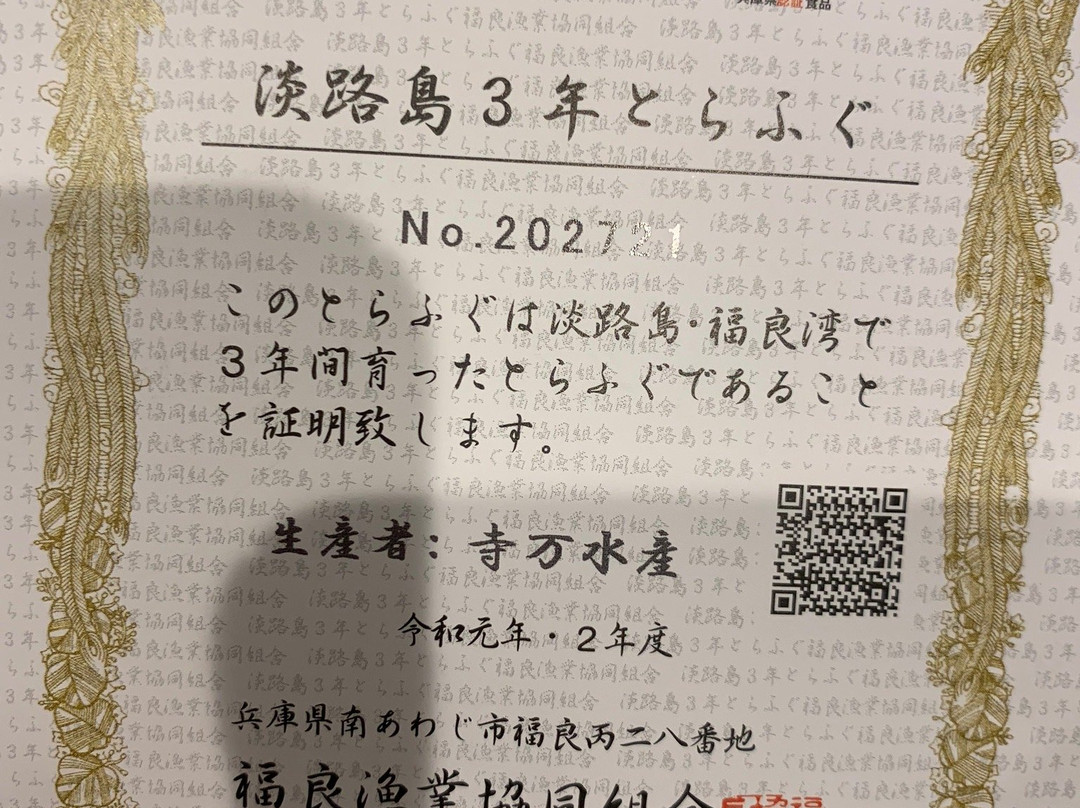 兵庫県認証食品
淡路島3年とらふぐ
No.202721
このとらふぐは淡路島・福良湾で
3年間育ったとらふぐであること
を証明致します。
生産者:寺万水産
令和元年・2年度
兵庫県南あわじ市福良丙二八番地
福良漁業協同組合